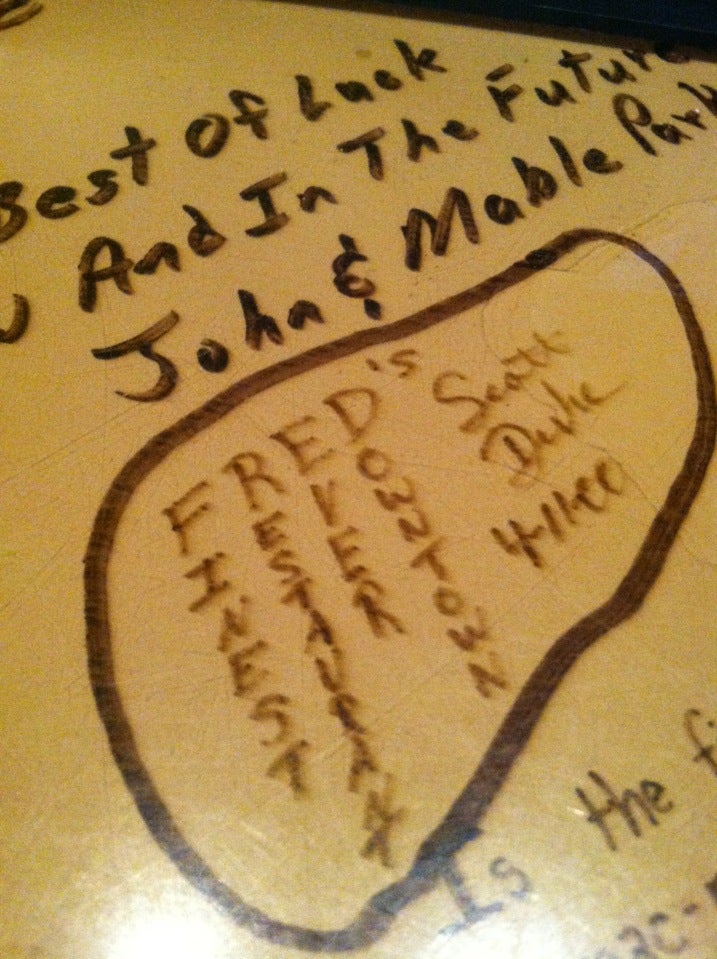 Best Of Luck
And In The Future
John & Mable Park
FRED's
INEST
ESTAURANT
VER
OWNTOWN
Scott
Duke
4-11-00
Is the